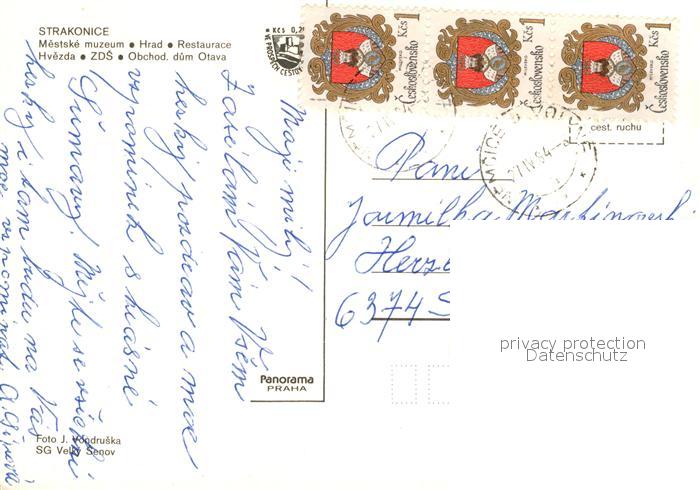 STRAKONICE
Městské muzeum • Hrad • Restaurace
Hvězda • ZDŠ • Obchod. dům Otava
Kčs 0,20
VE PROSPĚCH CESTOV.
Kčs 1
Československo
Kčs 1
Československo
Kčs 1
Československo
cest. ruchu
Moji milí!
Zasílám Vám všem
hezký pozdrav a moc
vzpomínek s krásné
Šumavy. Mějte se všichni
hezky i tam budu na Vás
moc vzpomínat.
Paní
Jarmilka
6374
Panorama
PRAHA
Foto J. Vondruška
SG Velký Šenov
privacy protection
Datenschutz